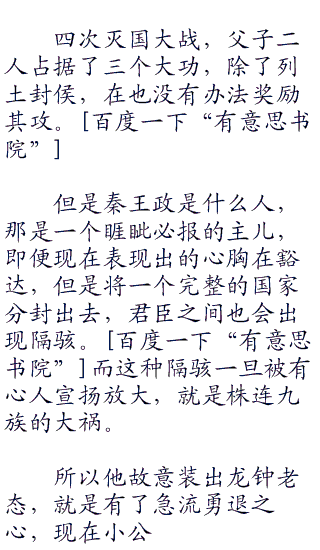 四次灭国大战，父子二
人占据了三个大功，除了列
土封侯，在也没有办法奖励
其攻。[百度一下“有意思书
院”]
但是秦王政是什么人，
那是一个睚眦必报的主儿，
即便现在表现出的心胸在豁
达，但是将一个完整的国家
分封出去，君臣之间也会出
现隔骇。[百度一下“有意思
书院”]而这种隔骇一旦被有
心人宣扬放大，就是株连九
族的大祸。
所以他故意装出龙钟老
态，就是有了急流勇退之
心，现在小公